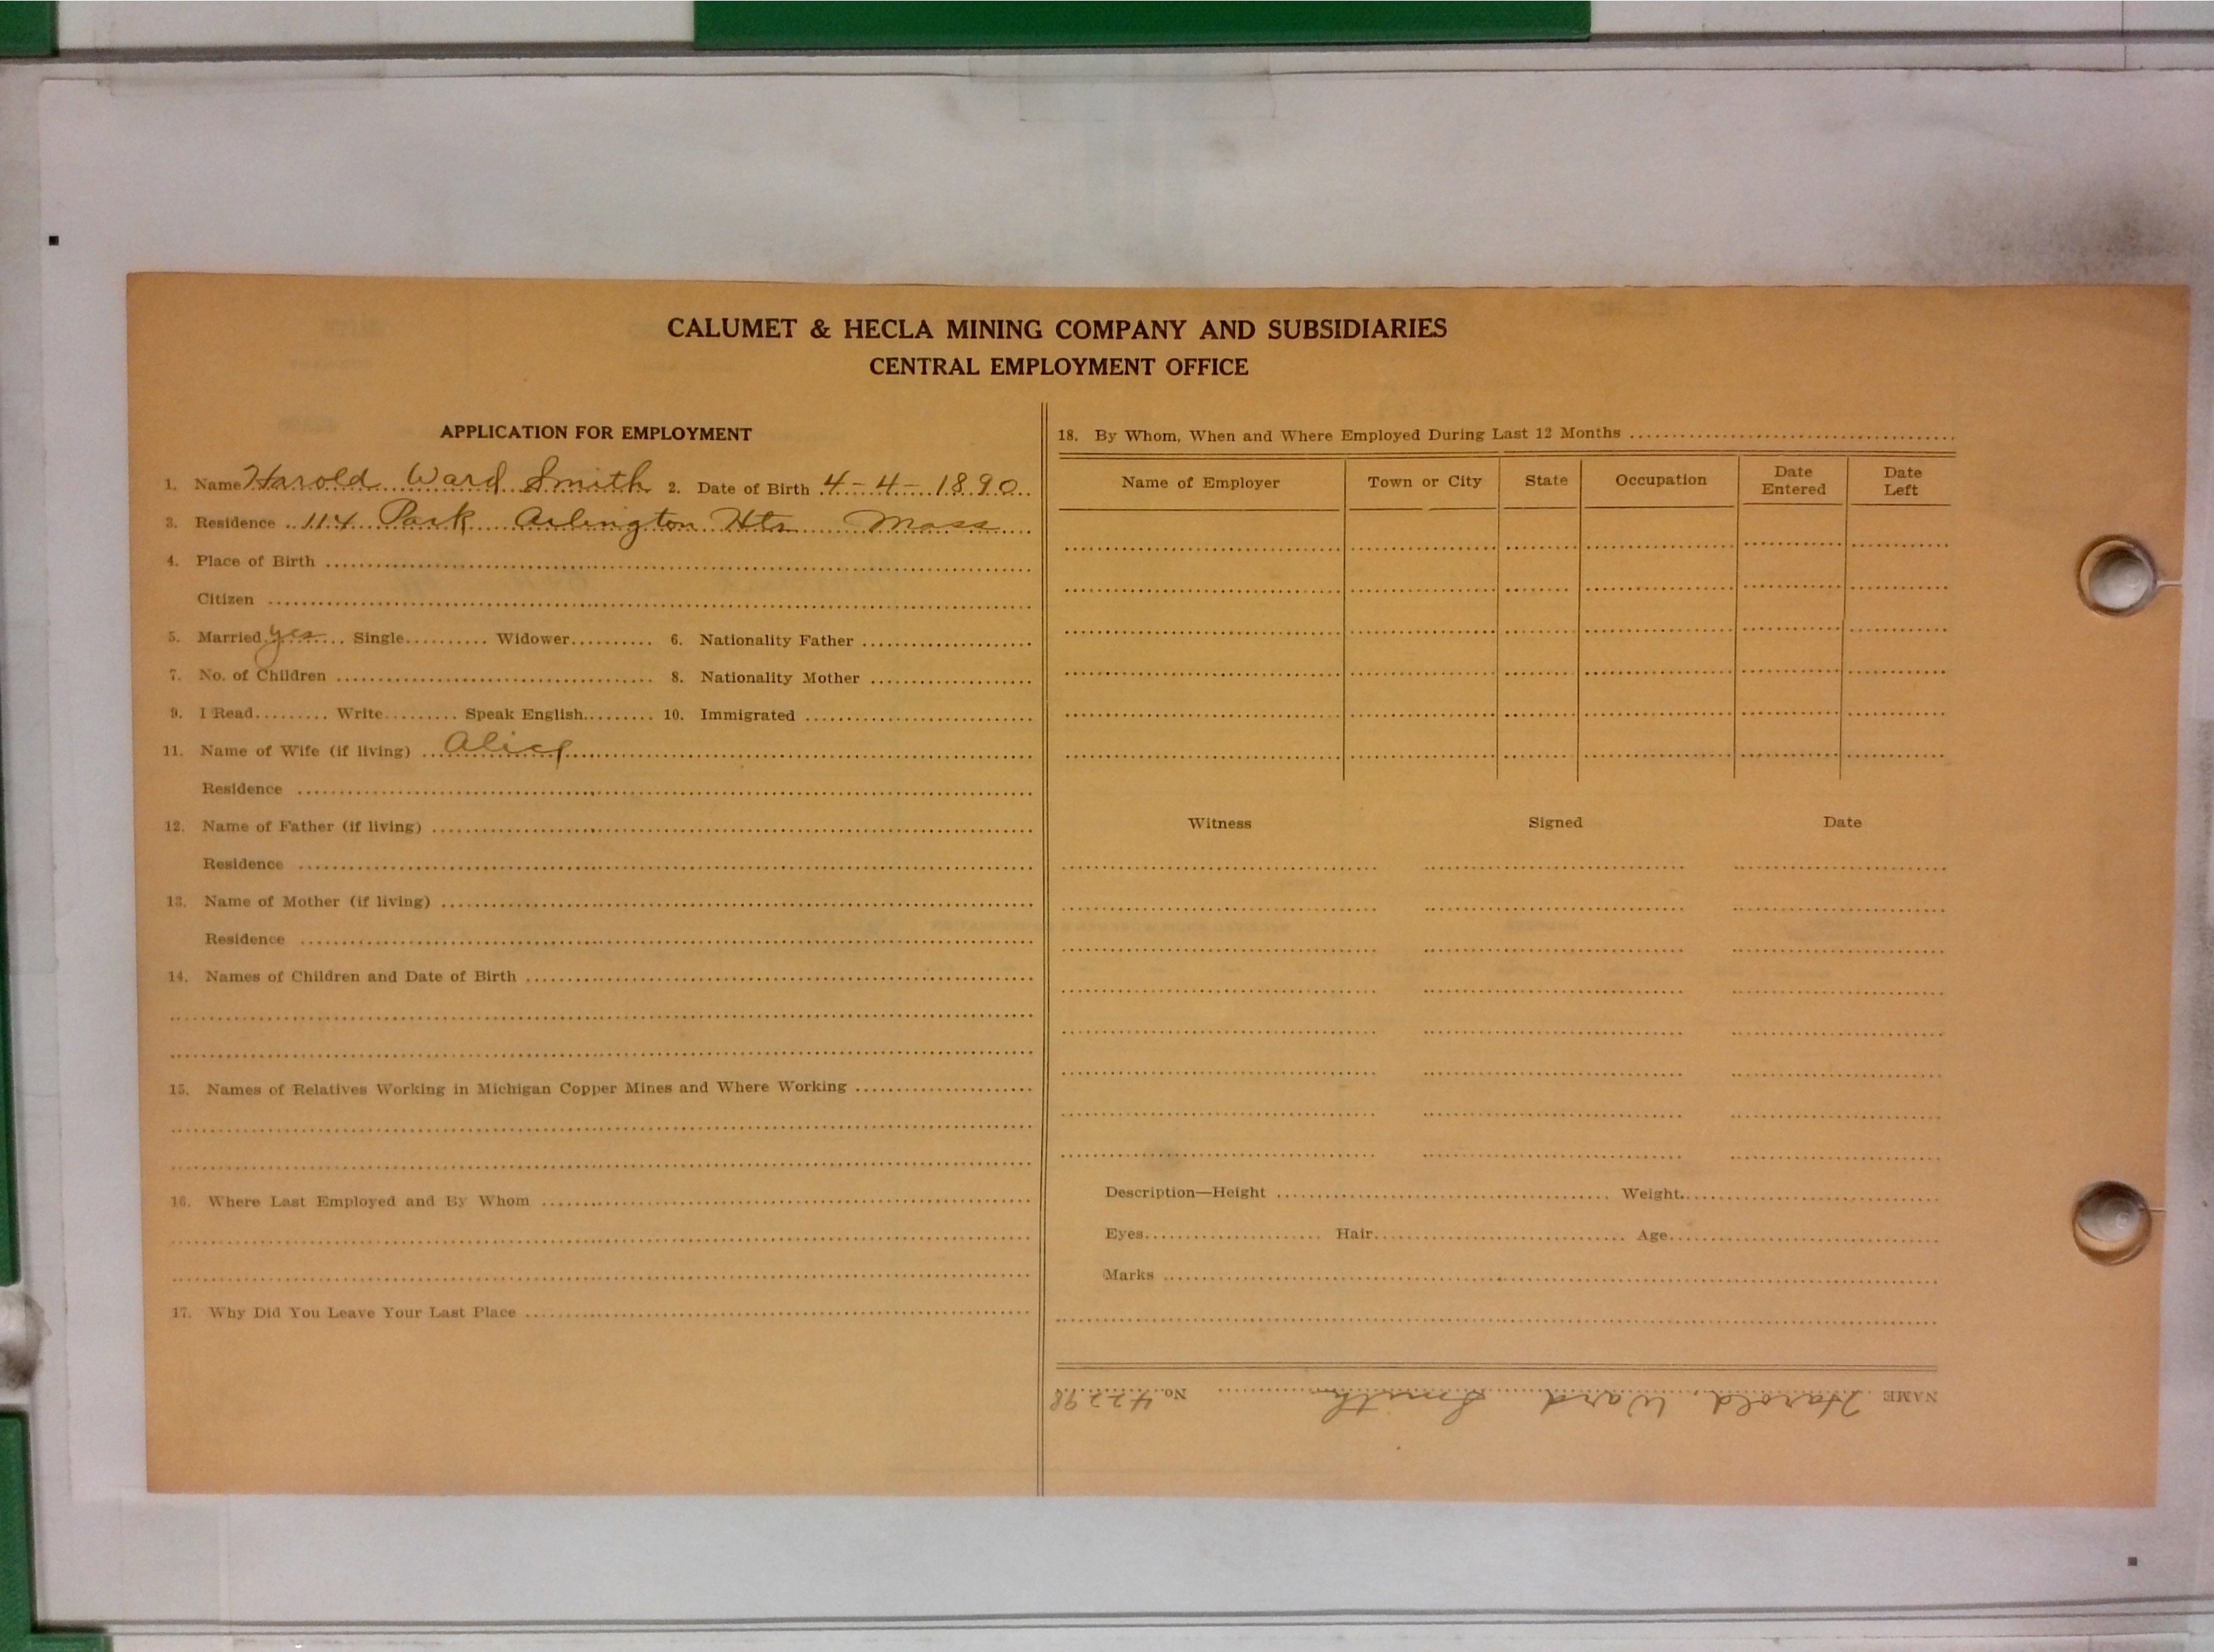 CALUMET & HECLA MINING COMPANY AND SUBSIDIARIES
CENTRAL EMPLOYMENT OFFICE
APPLICATION FOR EMPLOYMENT
1. Name Harold Ward Smith 2. Date of Birth 4-4-1890
3. Residence 114 Park Arlington Hts Mass
4. Place of Birth
Citizen
5. Married yes Single Widower 6. Nationality Father
7. No. of Children 8. Nationality Mother
9. I Read Write Speak English 10. Immigrated
11. Name of Wife (if living) Alice
Residence
12. Name of Father (if living)
Residence
13. Name of Mother (if living)
Residence
14. Names of Children and Date of Birth
15. Names of Relatives Working in Michigan Copper Mines and Where Working
16. Where Last Employed and By Whom
17. Why Did You Leave Your Last Place
18. By Whom, When and Where Employed During Last 12 Months
Name of Employer Town or City State Occupation Date Entered Date Left
Witness Signed Date
Description—Height Weight
Eyes Hair Age
Marks
NAME Harold Ward Smith No. 42298